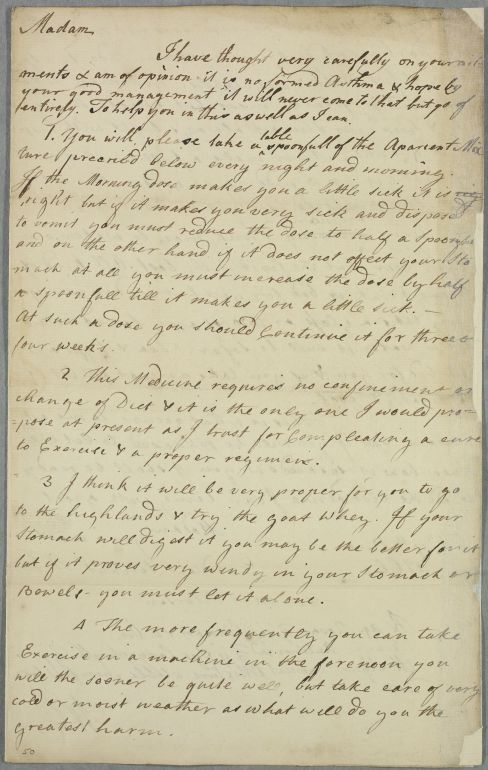 Madam
I have thought very carefully on your ail-
ments & am of opinion it is no formed Asthma & hope by
your good management it will never come to that but go of
entirely. To help you in this as well as I can.
1. You will please take a table spoonfull of the Aparient Mix
ture prepared below every night and morning.
If the Morning dose makes you a little sick it is
right but if it makes you very sick and disposed
to vomit you must reduce the dose to half a spoonfull
and on the other hand if it does not affect your Sto
mach at all you must increase the dose by half
a spoonfull till it makes you a little sick. —
At such a dose you should Continue it for three or
four weeks.
2 This Medicine requires no confinement or
change of Diet & it is the only one I would pro-
-pose at present as I trust for Compleating a cure
to Exercise & a proper regimen.
3 I think it will be very proper for you to go
to the highlands & try the goat whey. If your
Stomach will digest it you may be the better for it
but if it proves very windy in your Stomach or
Bowels - you must let it alone.
4 The more frequently you can take
Exercise in a machine in the forenoon you
will the sooner be quite well, but take care of very
cold or moist weather as what will do you the
greatest harm.
50